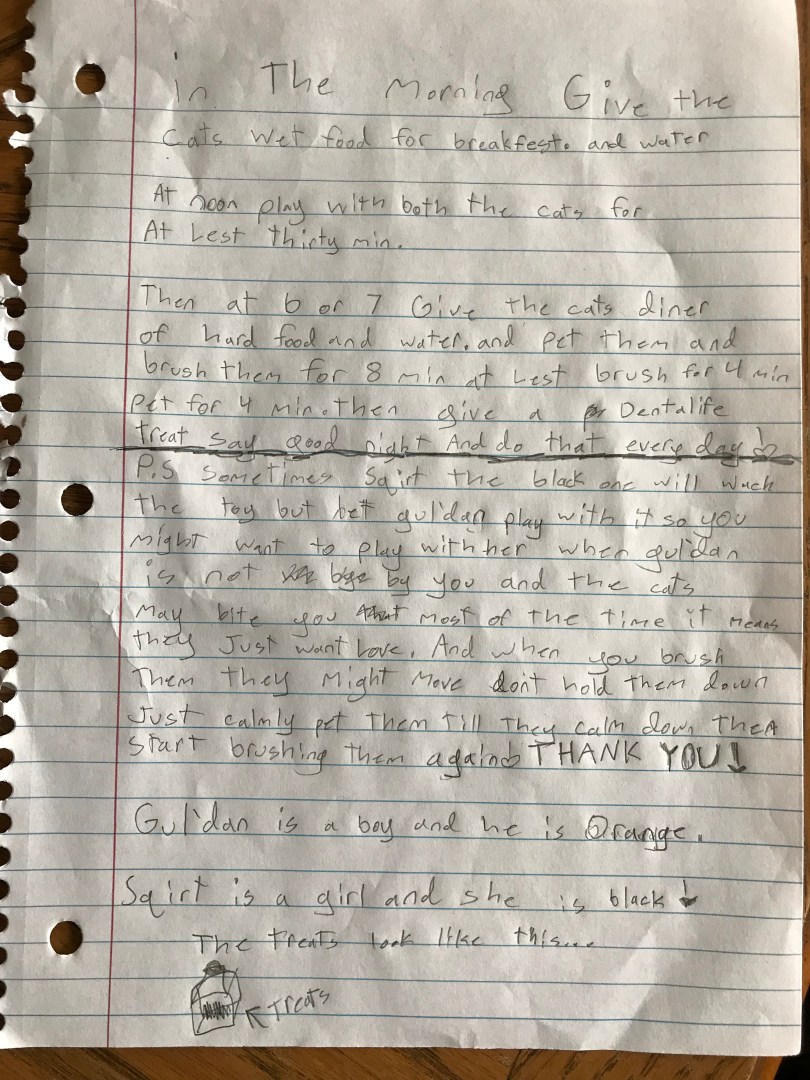 in The Morning Give the
Cats wet food for breakfest. and water
At noon play with both the cats for
At Lest thirty min.
Then at 6 or 7 Give the cats diner
of hard food and water. and pet them and
brush them for 8 min at Lest brush for 4 min
Pet for 4 min. then give a Dentalife
treat say good night And do that every day!
P.S sometimes Sqirt the black one will wach
the toy but let gul'dan play with it so you
might want to play with her when gul'dan
is not by you and the cats
may bite you most of the time it means
they Just want Love. And when you brush
Them they might Move don't hold them down
Just calmly pet them till they calm down then
start brushing them again! THANK YOU!
Gul'dan is a boy and he is Orange.
Sqirt is a girl and she is black!
The treats look like this...
Treats